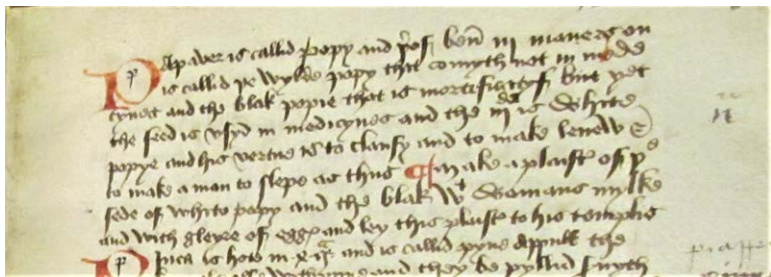 Papaver is callid popy and þer ben iij maneres on
is callid þe wylde popy that comyth not in mede
cynes and the blak popie that is mortificatyf but yet
the seed is vsyd in medicynes and the iijde is white
popye and his vertue is to clansy and to make
to make a man to slepe as thus ¶ Make a plaistr of þe
sede of white popy and the blak wt womans mylke
and with gleyre of eggs and ley this plaistr to his templis
Ppica is hote in and is callid pyne appull the
and they be pyllid